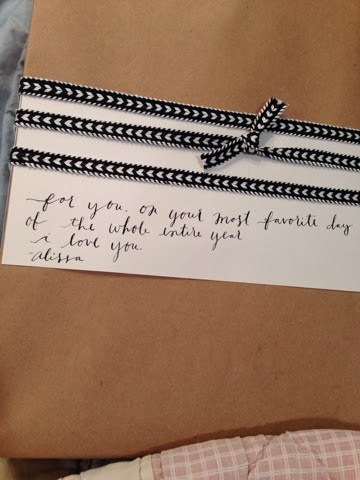 for you. on your most favorite day
of the whole entire year
i love you.
-alissa